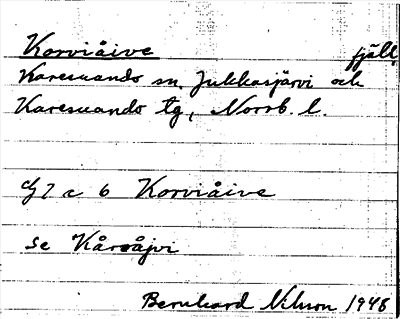 Korviåive fjäll,
Karesuando sn. Jukkasjärvi och
Karesuando tg, Norrb. l.
G7 a 6 Korviåive
se Kårvåjvi
Bernhard Nilsson 1948